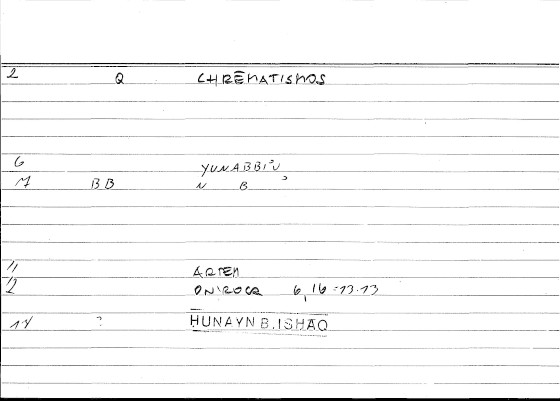 2 Q CHRĒMATISMOS
6 YUNABBI'U
7 BB N B '
11 ARTEM
12 ONIROCR 6,16 = 13.13
14 ? HUNAYN B. ISHAQ